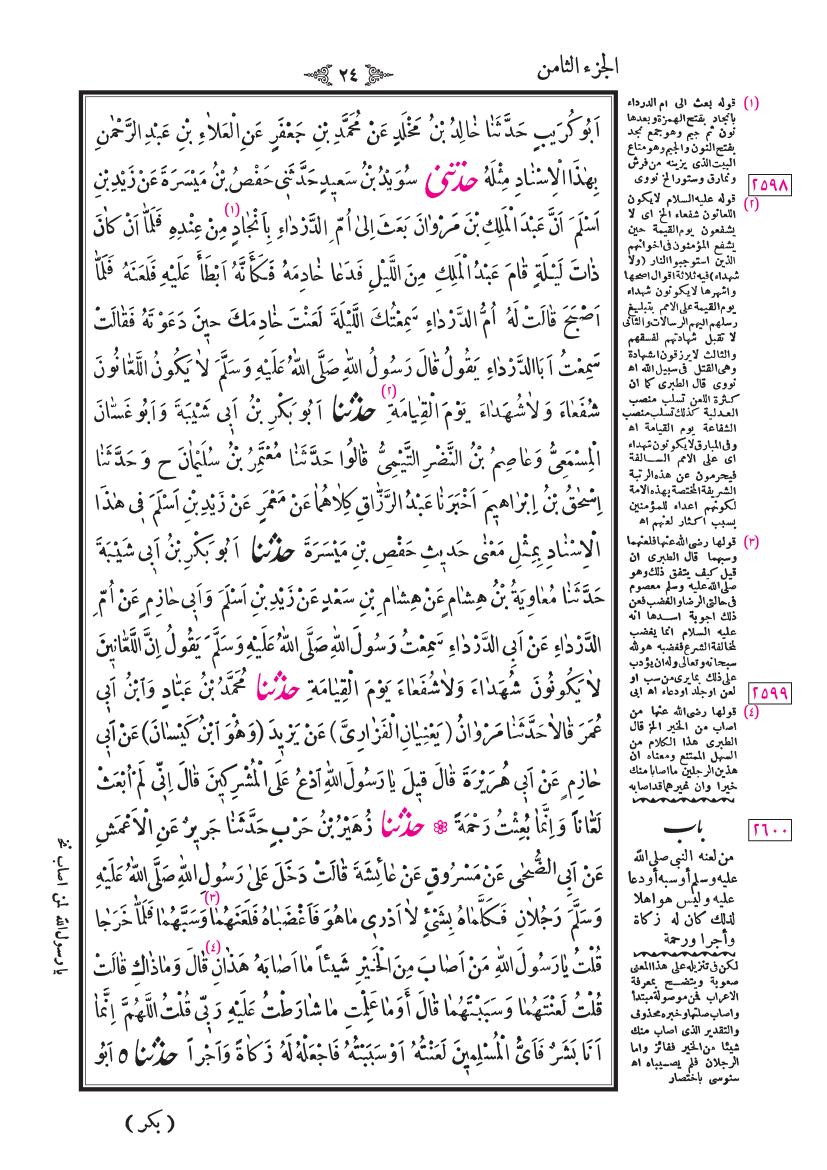 الجزء الثامن
٢٤
اَبُو كُرَيْبٍ حَدَّثَنَا خَالِدُ بْنُ مَخْلَدٍ عَنْ مُحَمَّدِ بْنِ جَعْفَرٍ عَنِ الْعَلَاءِ بْنِ عَبْدِ الرَّحْمٰنِ
بِهٰذَا الْاِسْنَادِ مِثْلَهُ حَدَّثَنِي سُوَيْدُ بْنُ سَعِيدٍ حَدَّثَنِي حَفْصُ بْنُ مَيْسَرَةَ عَنْ زَيْدِ بْنِ
اَسْلَمَ اَنَّ عَبْدَ الْمَلِكِ بْنَ مَرْوَانَ بَعَثَ اِلىٰ اُمِّ الدَّرْدَاءِ بِاَنْجَادٍ (١) مِنْ عِنْدِهِ فَلَمَّا اَنْ كَانَ
ذَاتَ لَيْلَةٍ قَامَ عَبْدُ الْمَلِكِ مِنَ اللَّيْلِ فَدَعَا خَادِمَهُ فَكَاَنَّهُ اَبْطَأَ عَلَيْهِ فَلَعَنَهُ فَلَمَّا
اَصْبَحَ قَالَتْ لَهُ اُمُّ الدَّرْدَاءِ سَمِعْتُكَ اللَّيْلَةَ لَعَنْتَ خَادِمَكَ حِينَ دَعَوْتَهُ فَقَالَتْ
سَمِعْتُ اَبَا الدَّرْدَاءِ يَقُولُ قَالَ رَسُولُ اللهِ صَلَّى اللهُ عَلَيْهِ وَسَلَّمَ لَا يَكُونُ اللَّعَّانُونَ
شُفَعَاءَ وَلَا شُهَدَاءَ يَوْمَ الْقِيَامَةِ (٢) حَدَّثَنَا اَبُو بَكْرِ بْنُ اَبِي شَيْبَةَ وَاَبُو غَسَّانَ
الْمِسْمَعِيُّ وَعَاصِمُ بْنُ النَّضْرِ التَّيْمِيُّ قَالُوا حَدَّثَنَا مُعْتَمِرُ بْنُ سُلَيْمَانَ ح وَحَدَّثَنَا
اِسْحٰقُ بْنُ اِبْرَاهِيمَ اَخْبَرَنَا عَبْدُ الرَّزَّاقِ كِلَاهُمَا عَنْ مَعْمَرٍ عَنْ زَيْدِ بْنِ اَسْلَمَ فِي هٰذَا
الْاِسْنَادِ بِمِثْلِ مَعْنٰى حَدِيثِ حَفْصِ بْنِ مَيْسَرَةَ حَدَّثَنَا اَبُو بَكْرِ بْنُ اَبِي شَيْبَةَ
حَدَّثَنَا مُعَاوِيَةُ بْنُ هِشَامٍ عَنْ هِشَامِ بْنِ سَعْدٍ عَنْ زَيْدِ بْنِ اَسْلَمَ وَاَبِي حَازِمٍ عَنْ اُمِّ
الدَّرْدَاءِ عَنْ اَبِي الدَّرْدَاءِ سَمِعْتُ رَسُولَ اللهِ صَلَّى اللهُ عَلَيْهِ وَسَلَّمَ يَقُولُ اِنَّ اللَّعَّانِينَ
لَا يَكُونُونَ شُهَدَاءَ وَلَا شُفَعَاءَ يَوْمَ الْقِيَامَةِ حَدَّثَنَا مُحَمَّدُ بْنُ عَبَّادٍ وَابْنُ اَبِي
عُمَرَ قَالَا حَدَّثَنَا مَرْوَانُ (يَعْنِيَانِ الْفَزَارِيَّ) عَنْ يَزِيدَ (وَهُوَ ابْنُ كَيْسَانَ) عَنْ اَبِي
حَازِمٍ عَنْ اَبِي هُرَيْرَةَ قَالَ قِيلَ يَا رَسُولَ اللهِ اُدْعُ عَلَى الْمُشْرِكِينَ قَالَ اِنِّي لَمْ اُبْعَثْ
لَعَّاناً وَاِنَّمَا بُعِثْتُ رَحْمَةً حَدَّثَنَا زُهَيْرُ بْنُ حَرْبٍ حَدَّثَنَا جَرِيرٌ عَنِ الْاَعْمَشِ
عَنْ اَبِي الضُّحٰى عَنْ مَسْرُوقٍ عَنْ عَائِشَةَ قَالَتْ دَخَلَ عَلىٰ رَسُولِ اللهِ صَلَّى اللهُ عَلَيْهِ
وَسَلَّمَ رَجُلَانِ فَكَلَّمَاهُ بِشَيْءٍ لَا اَدْرِي مَا هُوَ فَاَغْضَبَاهُ فَلَعَنَهُمَا (٣) وَسَبَّهُمَا فَلَمَّا خَرَجَا
قُلْتُ يَا رَسُولَ اللهِ مَنْ اَصَابَ مِنَ الْخَيْرِ شَيْئاً مَا اَصَابَهُ هٰذَانِ (٤) قَالَ وَمَا ذَاكِ قَالَتْ
قُلْتُ لَعَنْتَهُمَا وَسَبَبْتَهُمَا قَالَ أَوَمَا عَلِمْتِ مَا شَارَطْتُ عَلَيْهِ رَبِّي قُلْتُ اللّٰهُمَّ اِنَّمَا
اَنَا بَشَرٌ فَاَيُّ الْمُسْلِمِينَ لَعَنْتُهُ اَوْ سَبَبْتُهُ فَاجْعَلْهُ لَهُ زَكَاةً وَاَجْراً حَدَّثَنَاه اَبُو
( بكر )
(١) قوله بعث الى ام الدرداء
بانجاد بفتح الهمزة وبعدها
نون ثم جيم وهو جمع نجد
بفتح النون والجيم وهو متاع
البيت الذى يزينه من فرش
ونمارق وستور الخ نووى
٢٥٩٨
(٢) قوله عليه السلام لا يكون
اللعانون شفعاء الخ اى لا
يشفعون يوم القيمة حين
يشفع المؤمنون فى اخوانهم
الذين استوجبوا النار (ولا
شهداء) فيه ثلاثة اقوال اصحها
واشهرها لا يكونون شهداء
يوم القيمة على الامم بتبليغ
رسلهم اليهم الرسالات والثانى
لا تقبل شهادتهم لفسقهم
والثالث لا يرزقون الشهادة
وهى القتل فى سبيل الله اه
نووى قال الطبرى كما ان
كثرة اللعن تسلب منصب
العدلية كذلك تسلب منصب
الشفاعة يوم القيامة اه
وفى المبارق لا يكونون شهداء
اى على الامم السالفة
فيحرمون عن هذه الرتبة
الشريفة المختصة بهذه الامة
لكونهم اعداء للمؤمنين
بسبب اكثار لعنهم اه
(٣) قولها رضى الله عنها فلعنهما
وسبهما قال الطبرى ان
قيل كيف يتفق ذلك وهو
صلى الله عليه وسلم معصوم
فى حالتى الرضا والغضب فعن
ذلك اجوبة اسدها انه
عليه السلام انما يغضب
لمخالفة الشرع فغضبه هو لله
سبحانه وتعالى وله ان يؤدب
على ذلك بما يرى من سب او
لعن او جلد او دعاء اه ابى
٢٥٩٩
(٤) قولها رضى الله عنها من
اصاب من الخير الخ قال
الطبرى هذا الكلام من
السهل الممتنع ومعناه ان
هذين الرجلين ما اصابا منك
خيرا وان غيرهما قد اصابه
باب
٢٦٠٠
من لعنه النبى صلى الله
عليه وسلم أو سبه أو دعا
عليه وليس هو اهلا
لذلك كان له زكاة
وأجرا ورحمة
لكن فى تنزيله على هذا المعنى
صعوبة ويتضح بمعرفة
الاعراب فمن موصولة مبتدأ
واصاب صلتها وخبره محذوف
والتقدير الذى اصاب منك
شيئا من الخير ففائز واما
الرجلان فلم يصيباه اه
سنوسى باختصار
يا رسول الله لمن اصاب نخ